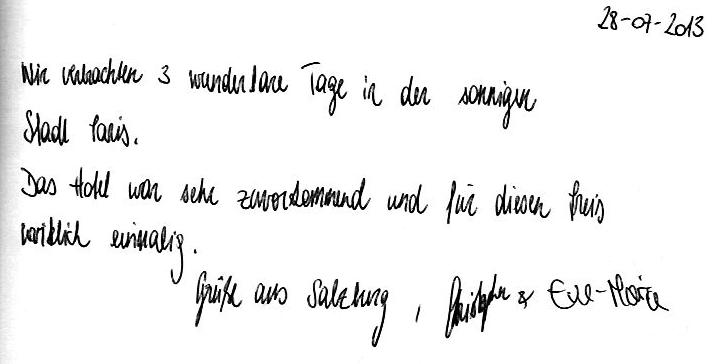 28-07-2013
Wir verbrachten 3 wunderbare Tage in der sonnigen
Stadt Paris.
Das Hotel war sehr zuvorkommend und für diesen Preis
wirklich einmalig.
Grüße aus Salzburg, Christopher & Eva-Maria